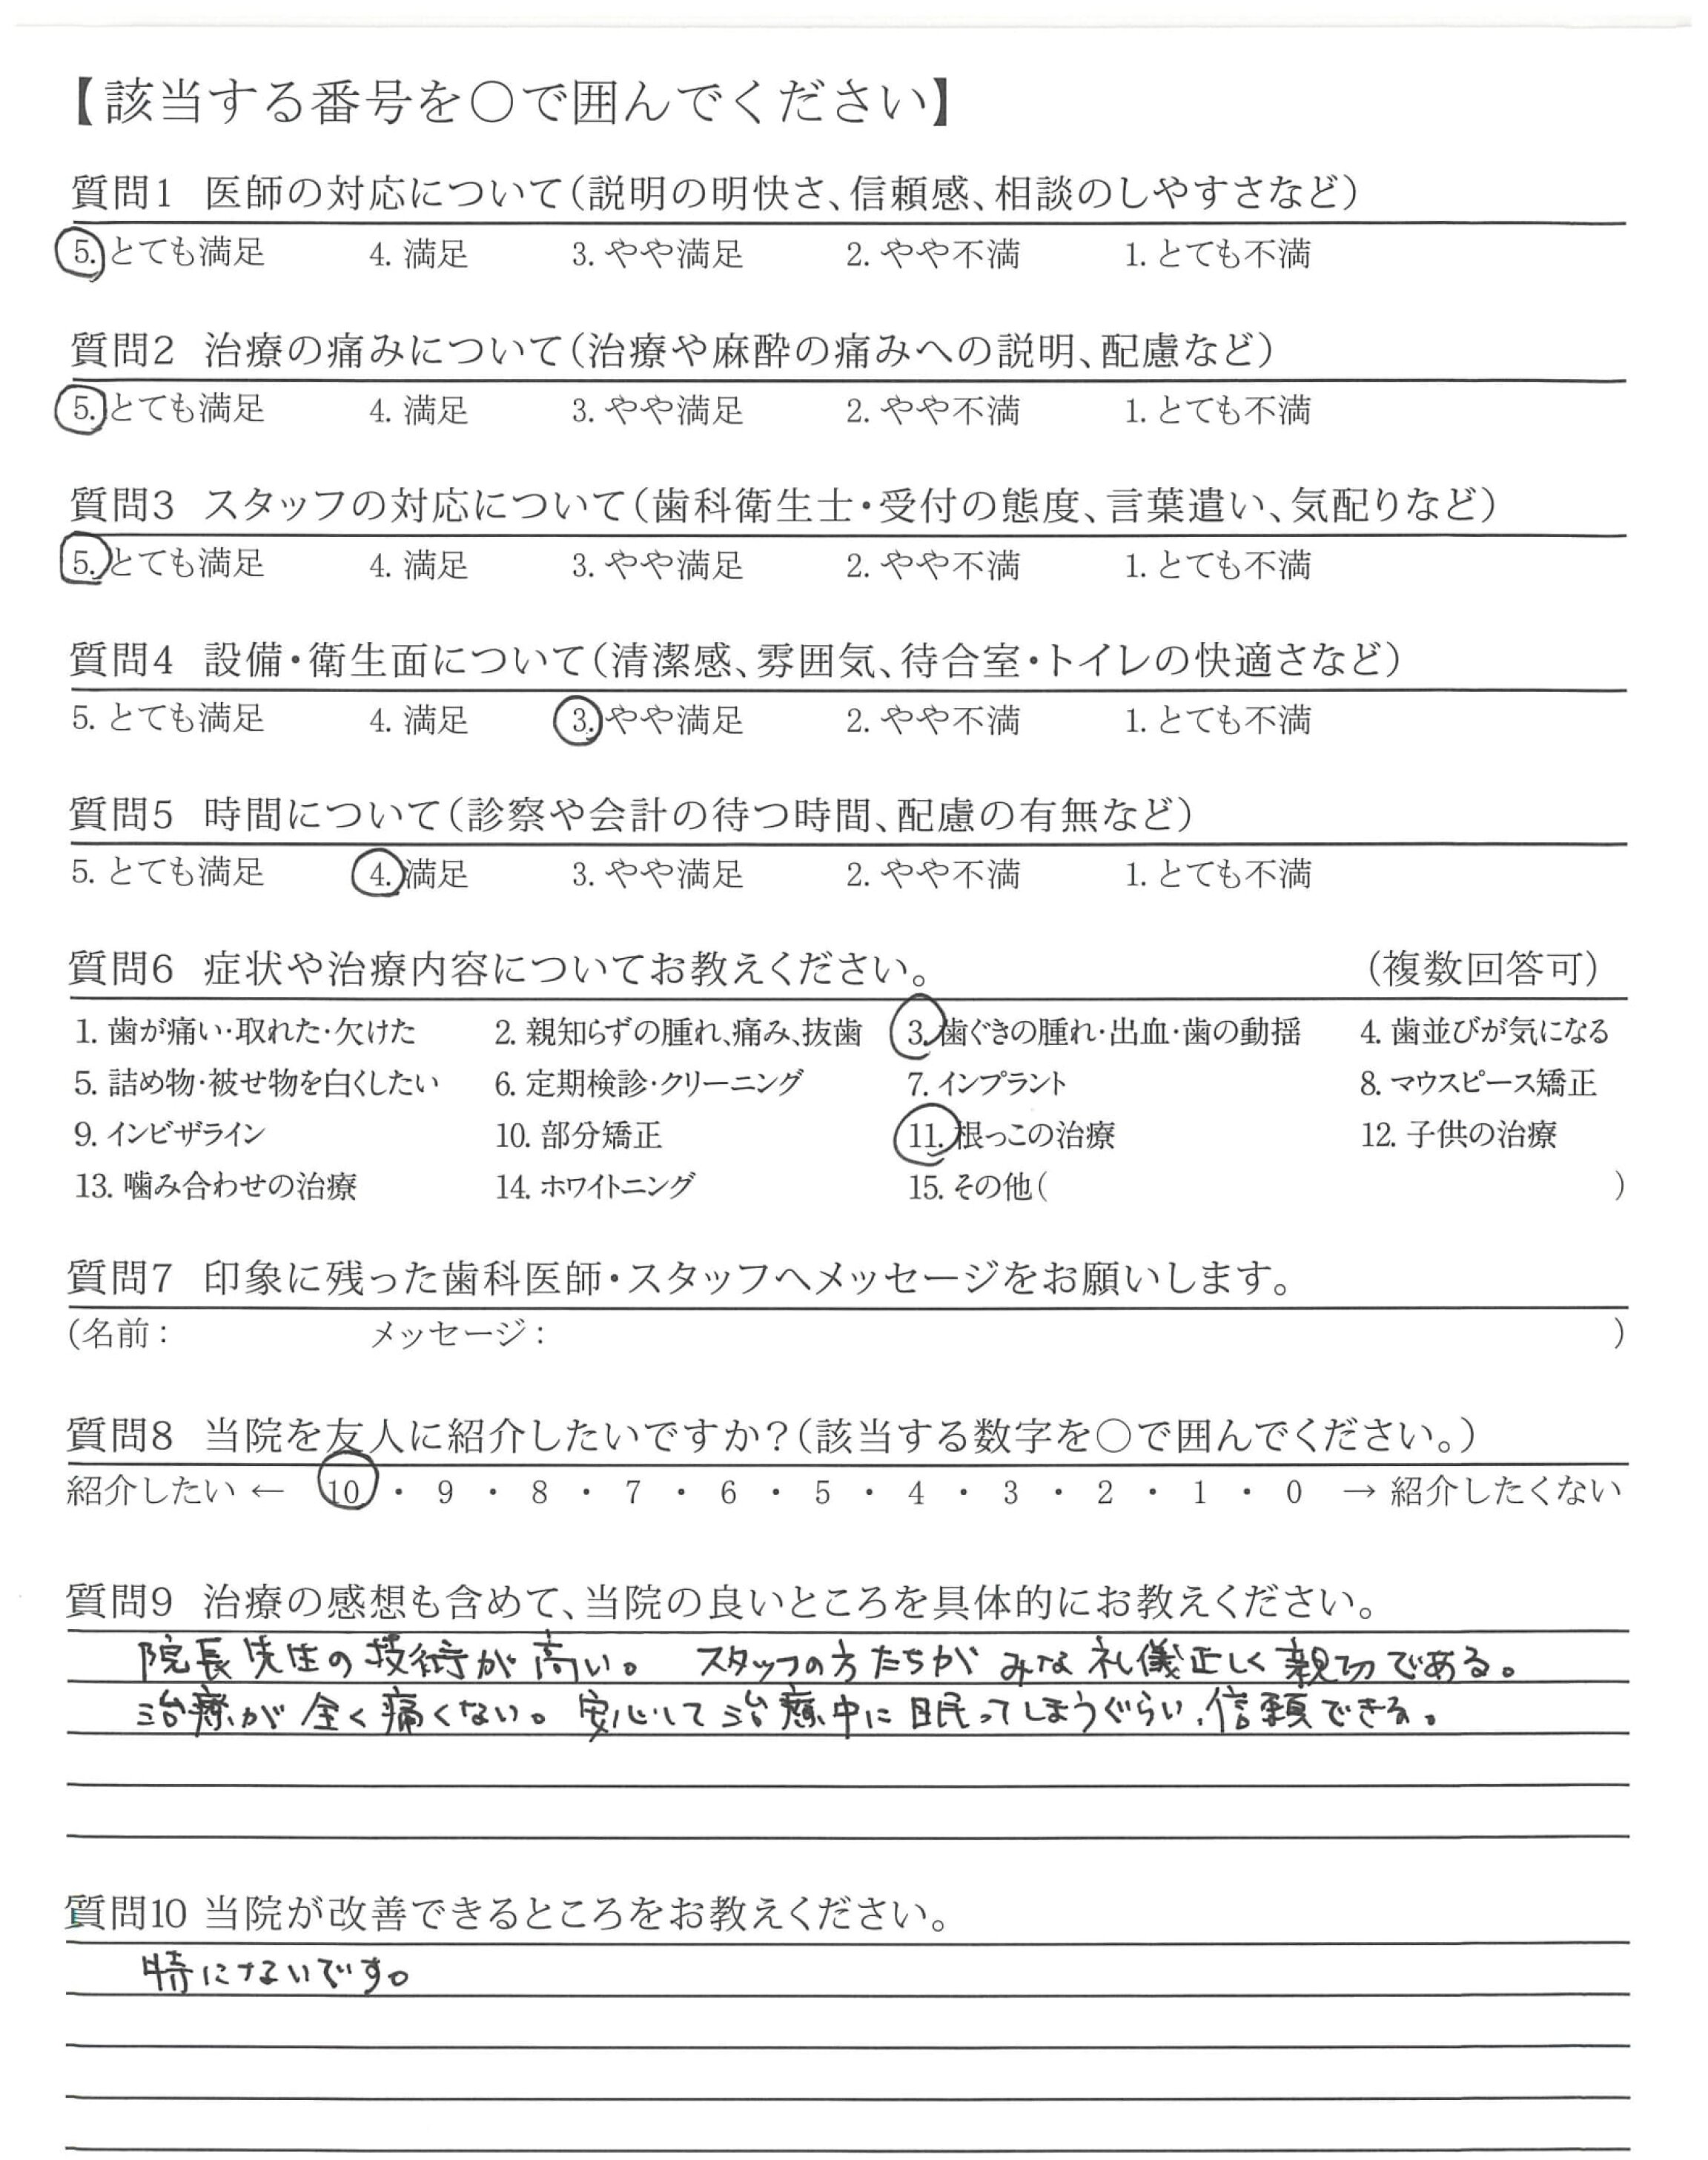 【該当する番号を○で囲んでください】
質問1 医師の対応について(説明の明快さ、信頼感、相談のしやすさなど)
5. とても満足 4. 満足 3. やや満足 2. やや不満 1. とても不満
質問2 治療の痛みについて(治療や麻酔の痛みへの説明、配慮など)
5. とても満足 4. 満足 3. やや満足 2. やや不満 1. とても不満
質問3 スタッフの対応について(歯科衛生士・受付の態度、言葉遣い、気配りなど)
5. とても満足 4. 満足 3. やや満足 2. やや不満 1. とても不満
質問4 設備・衛生面について(清潔感、雰囲気、待合室・トイレの快適さなど)
5. とても満足 4. 満足 3. やや満足 2. やや不満 1. とても不満
質問5 時間について(診察や会計の待つ時間、配慮の有無など)
5. とても満足 4. 満足 3. やや満足 2. やや不満 1. とても不満
質問6 症状や治療内容についてお教えください。 (複数回答可)
1. 歯が痛い・取れた・欠けた 2. 親知らずの腫れ、痛み、抜歯 3. 歯ぐきの腫れ・出血・歯の動揺 4. 歯並びが気になる
5. 詰め物・被せ物を白くしたい 6. 定期検診・クリーニング 7. インプラント 8. マウスピース矯正
9. インビザライン 10. 部分矯正 11. 根っこの治療 12. 子供の治療
13. 噛み合わせの治療 14. ホワイトニング 15. その他( )
質問7 印象に残った歯科医師・スタッフへメッセージをお願いします。
(名前: メッセージ: )
質問8 当院を友人に紹介したいですか?(該当する数字を○で囲んでください。)
紹介したい ← 10 ・ 9 ・ 8 ・ 7 ・ 6 ・ 5 ・ 4 ・ 3 ・ 2 ・ 1 ・ 0 → 紹介したくない
質問9 治療の感想も含めて、当院の良いところを具体的にお教えください。
院長先生の技術が高い。 スタッフの方たちがみな礼儀正しく親切である。
治療が全く痛くない。安心して治療中に眠ってしまうぐらい、信頼できる。
質問10 当院が改善できるところをお教えください。
特にないです。